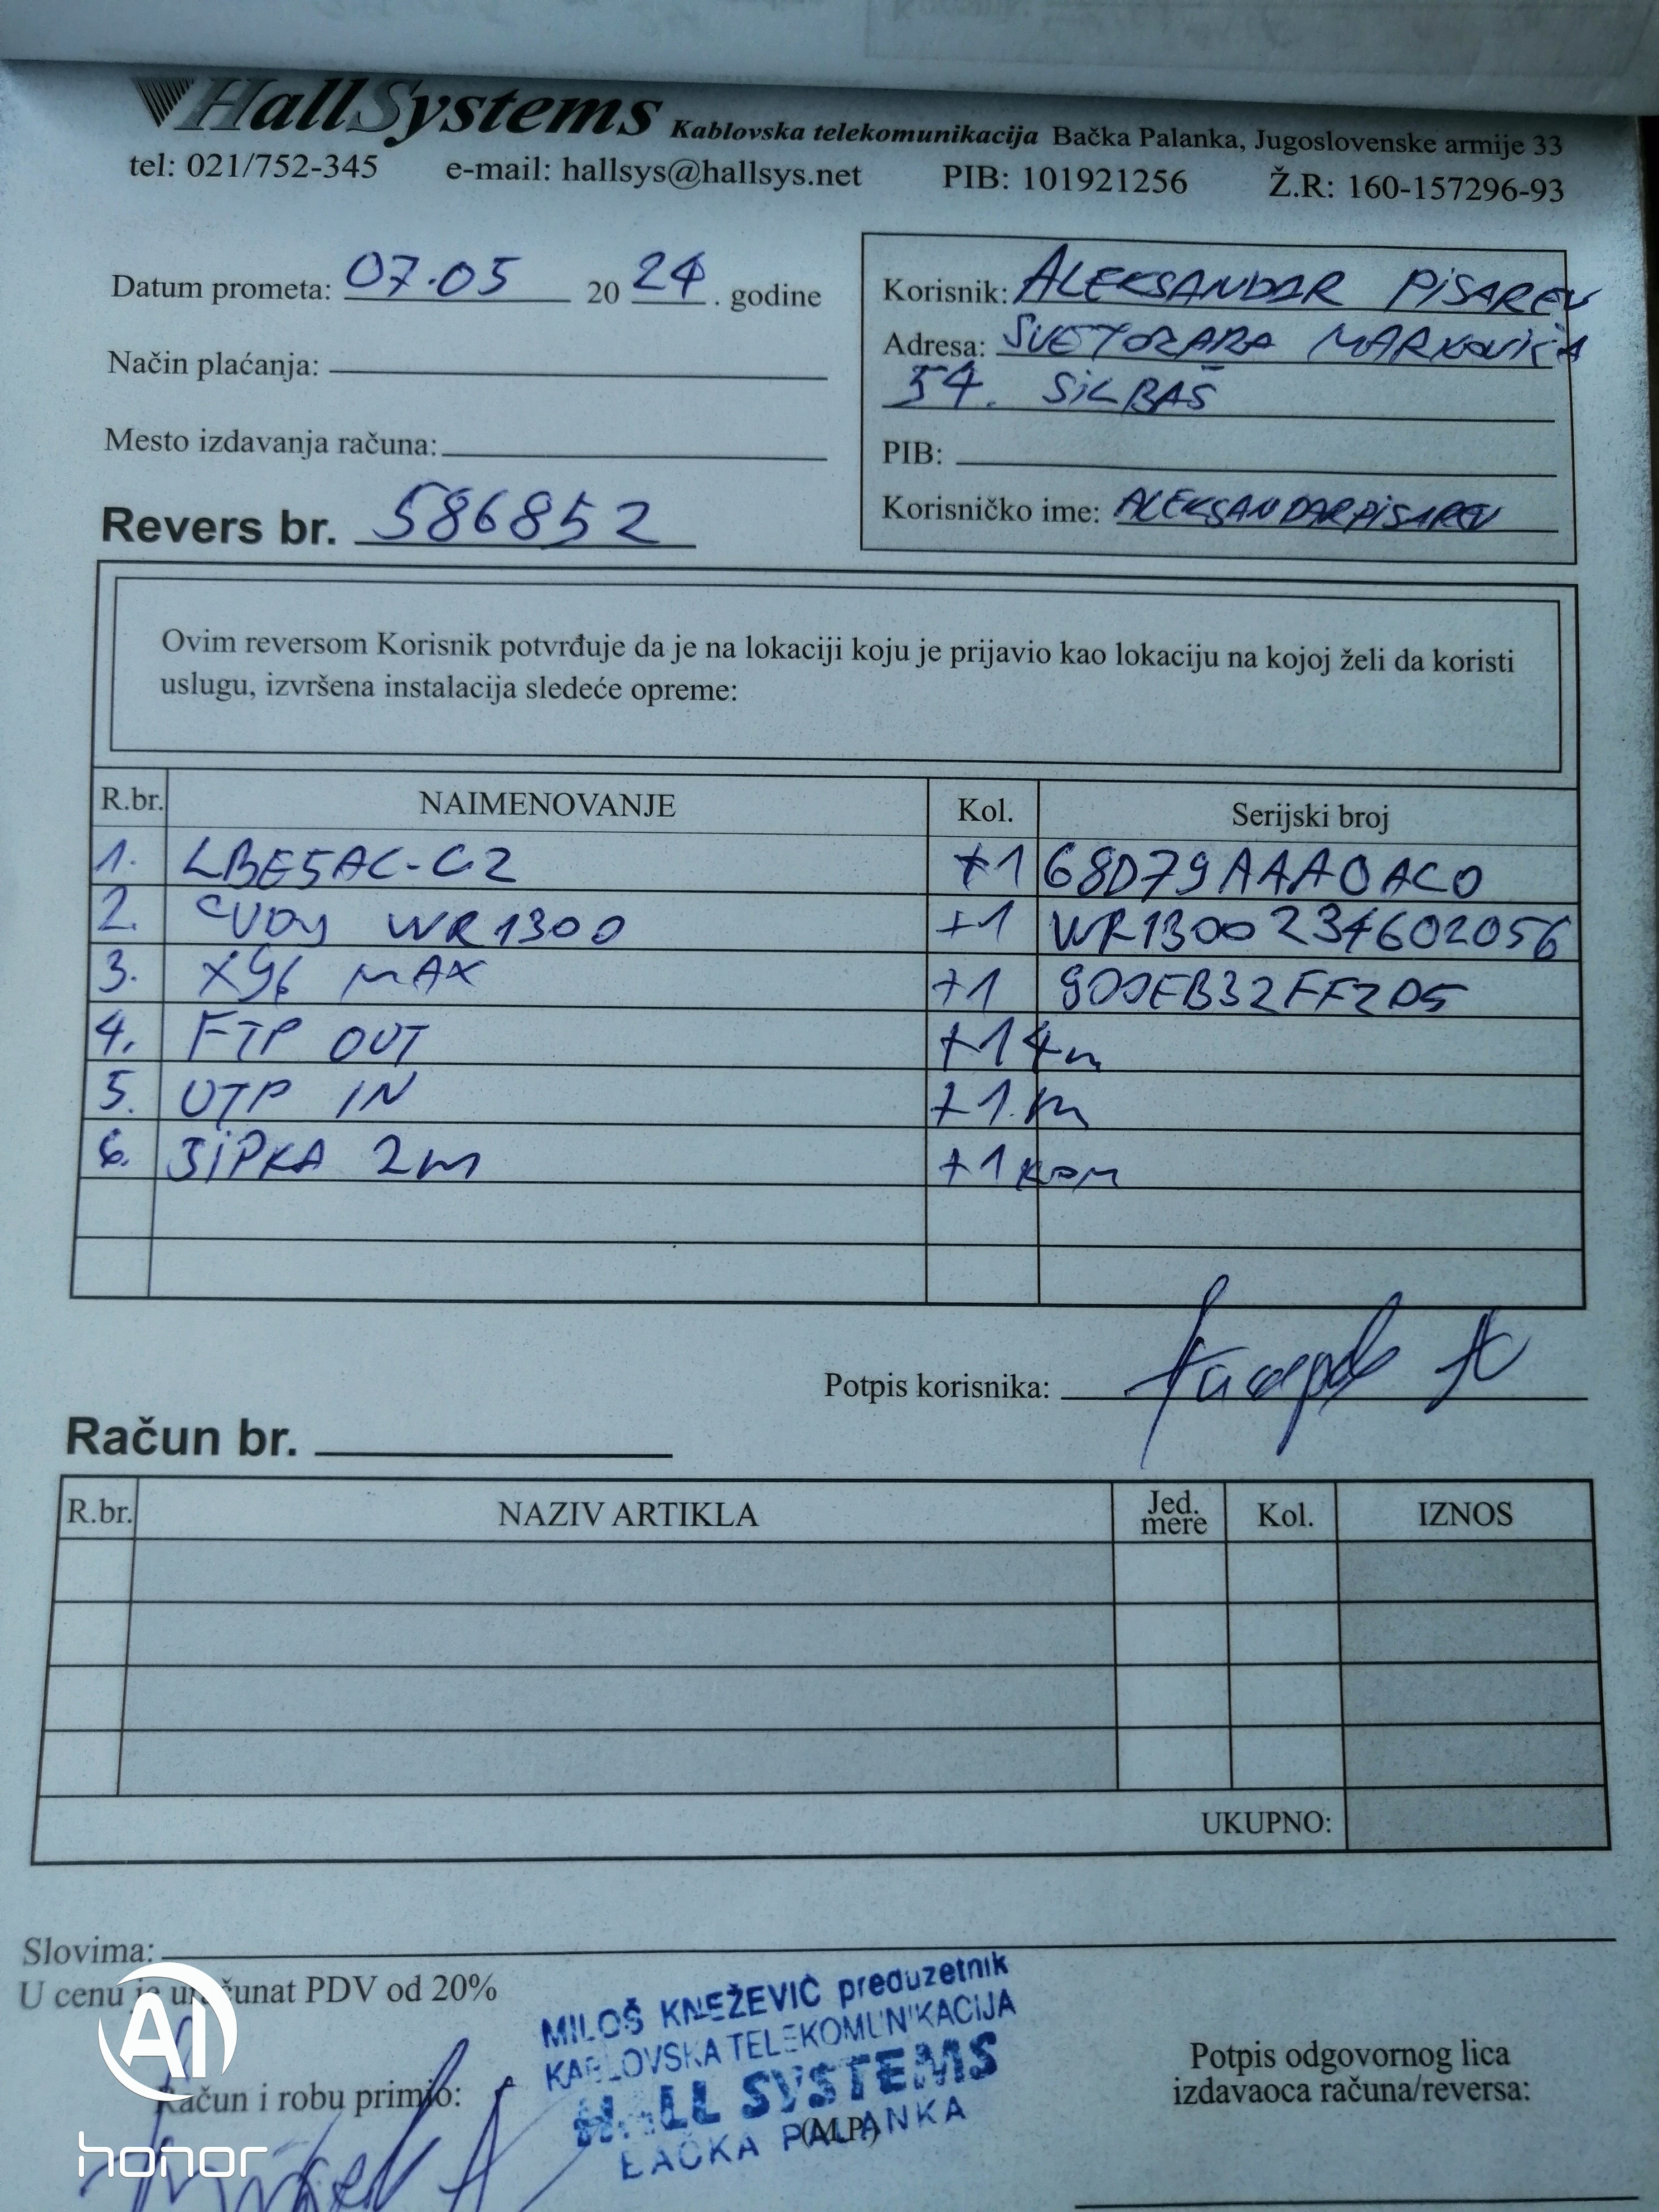 HallSystems Kablovska telekomunikacija Bačka Palanka, Jugoslovenske armije 33
tel: 021/752-345 e-mail: hallsys@hallsys.net PIB: 101921256 Ž.R: 160-157296-93
Datum prometa: 07.05 2024. godine
Način plaćanja:
Mesto izdavanja računa:
Revers br. 586852
Korisnik: ALEKSANDAR PISAREV
Adresa: SVETOZARA MARKOVIĆA
54. SILBAŠ
PIB:
Korisničko ime: ALEKSANDARPISAREV
Ovim reversom Korisnik potvrđuje da je na lokaciji koju je prijavio kao lokaciju na kojoj želi da koristi
uslugu, izvršena instalacija sledeće opreme:
R.br. NAIMENOVANJE Kol. Serijski broj
1. LBE5AC-G2 +1 68D79AAA0AC0
2. CUDY WR1300 +1 WR1300234602056
3. X96 MAX +1
4. FTP OUT +14m
5. UTP IN +1m
6. ŠIPKA 2m +1 kom
Potpis korisnika:
Račun br.
R.br. NAZIV ARTIKLA Jed. mere Kol. IZNOS
UKUPNO:
Slovima:
U cenu je uračunat PDV od 20%
MILOŠ KNEŽEVIĆ preduzetnik
KABLOVSKA TELEKOMUNIKACIJA
HALL SYSTEMS
BAČKA PALANKA
Račun i robu primio:
(M.P.)
Potpis odgovornog lica
izdavaoca računa/reversa:
AI
honor